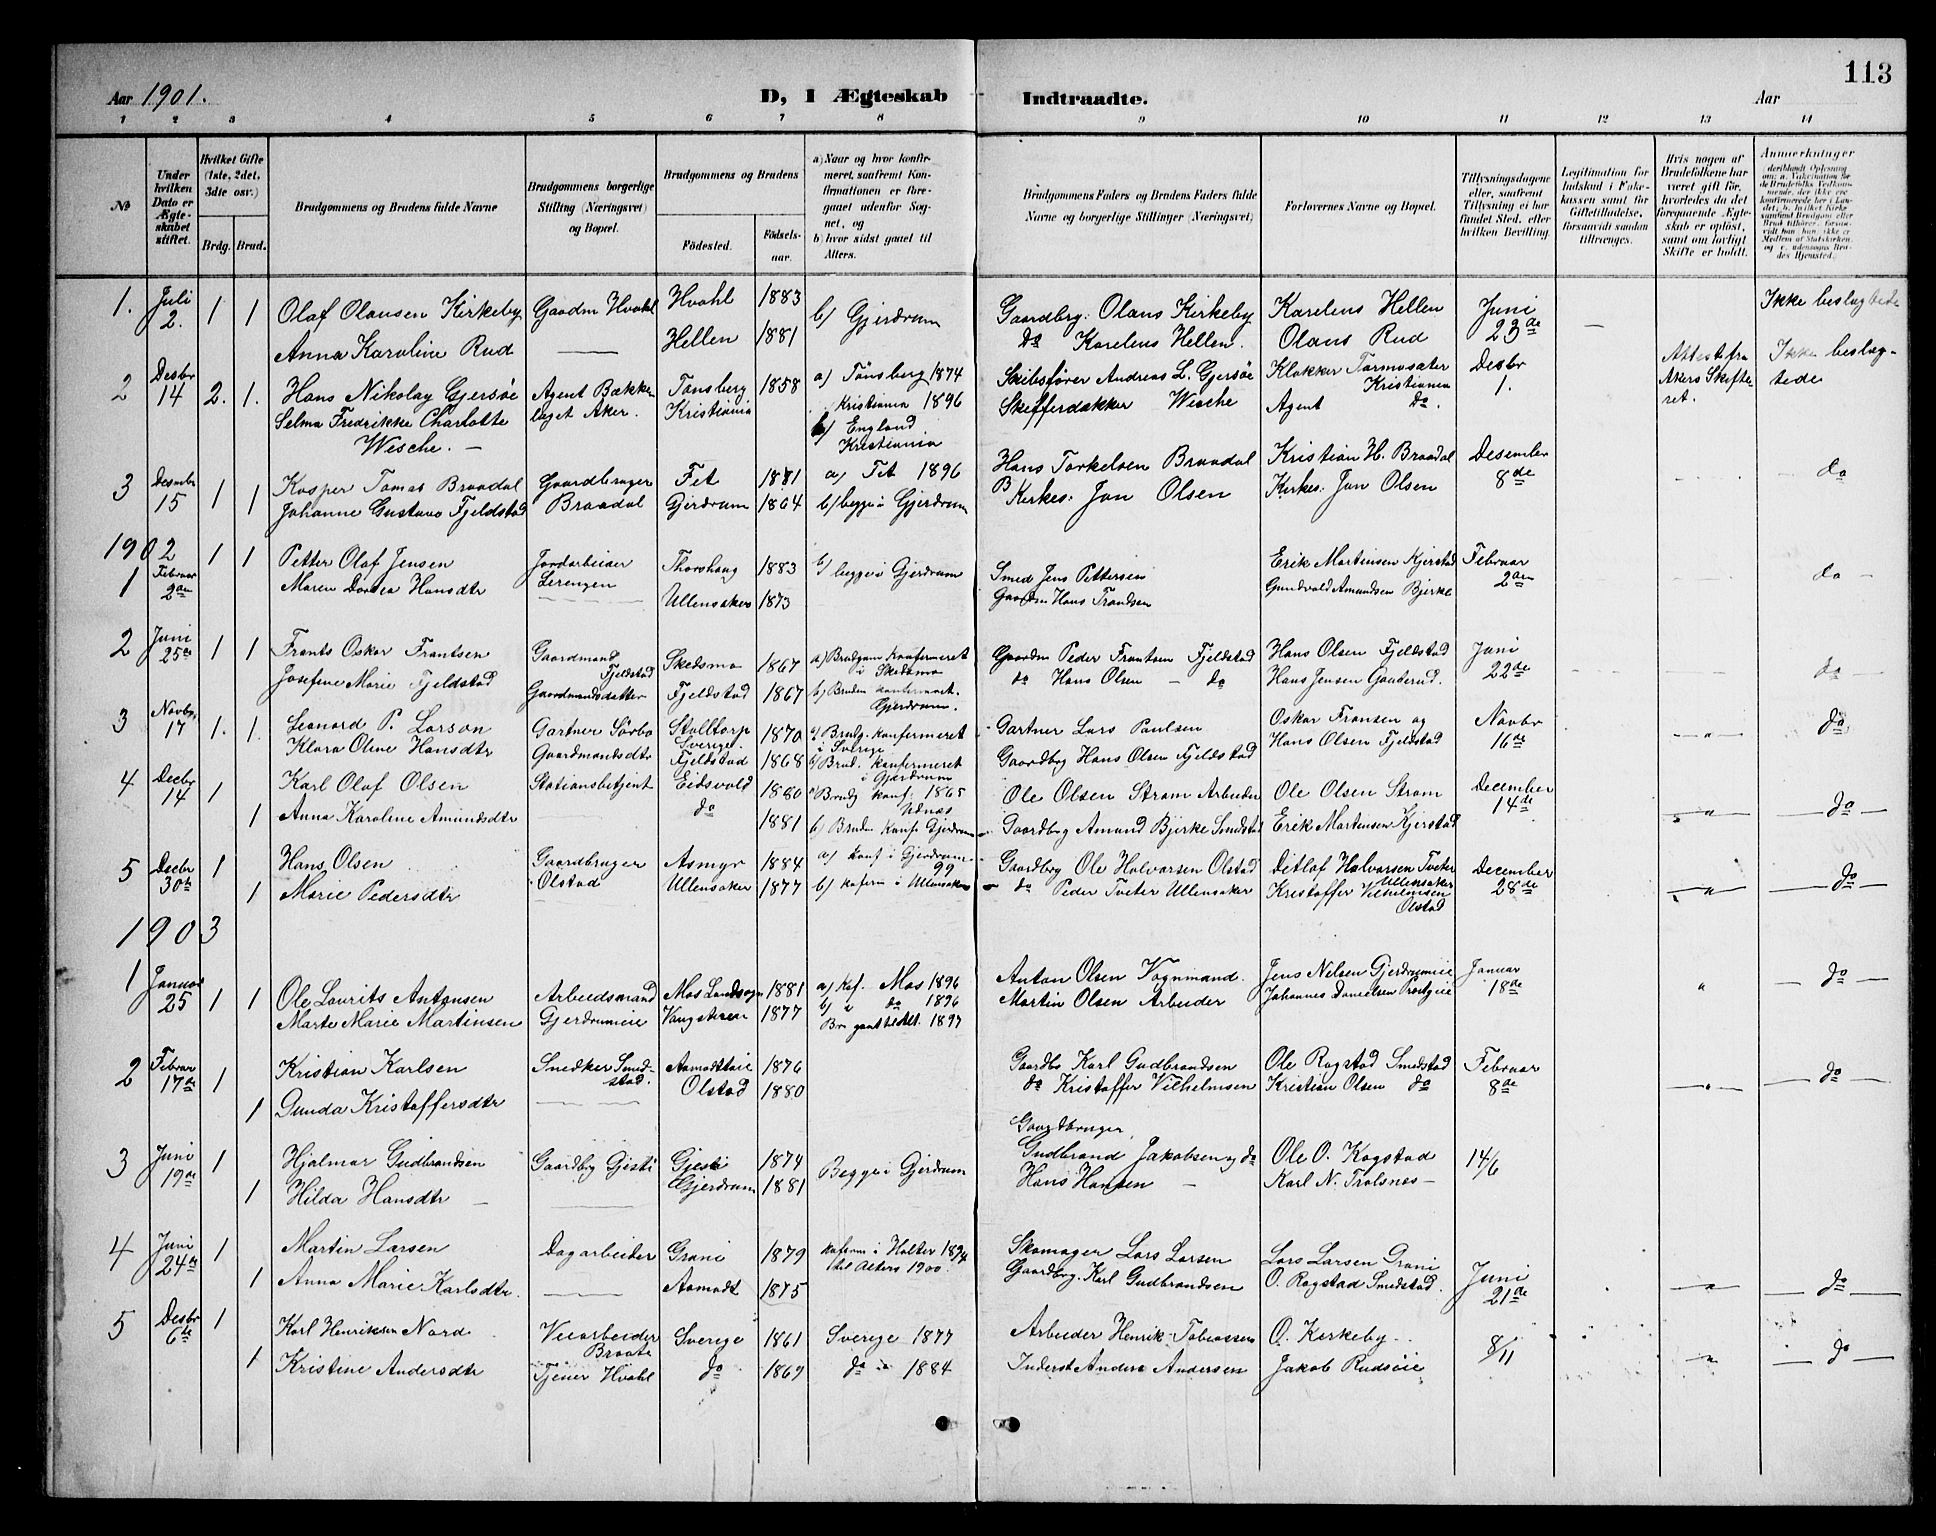 113
Aar 1901.
D, I Ægteskab Indtraadte.
Aar
1 2 3 4 5 6 7 8 9 10 11 12 13 14
№
Under hvilken Dato er Ægteskabet stiftet.
Hvilket Gifte (1ste, 2det, 3die osv.)
Brdg. Brud.
Brudgommens og Brudens fulde Navne
Brudgommens borgerlige Stilling (Næringsvei) og Bopæl.
Brudgommens og Brudens
Födested.
Födselsaar.
a) Naar og hvor konfirmeret, saafremt Konfirmationen er foregaaet udenfor Sognet, og
b) hvor sidst gaaet til Alters.
Brudgommens Faders og Brudens Faders fulde Navne og borgerlige Stillinger (Næringsvei)
Forlovernes Navne og Bopæl.
Tillysningsdagene eller, saafremt Tillysning ei har fundet Sted, efter hvilken Bevilling.
Legitimation for Indskud i Enkekassen samt for Giftetilladelse, forsaavidt saadan tiltrænges.
Hvis nogen af Brudefolkene har været gift för, hvorledes da det foregaaende Ægteskab er oplöst, samt om lovligt Skifte er holdt.
Anmærkninger
1. Juli 2. 1 1 Olaf Olausen Kirkeby Gaardm Hvahl Hvahl 1883 b) Gjerdrum Gaardbrg: Olaus Kirkeby Karelens Hellen Juni 23de — Ikke beslægtede
Anna Karoline Rud — Hellen 1881 do Karelens Hellen. Olaus Rud
2 Desbr 14 2. 1. Hans Nikolay Gjersöe Agent Bækkelaget Aker. Tönsberg 1858 a) Tönsberg 1874 Skibsförer Andreas L. Gjersöe Klokker Tormosæter Kristiania Desbr 1. Attest fra Akers Skifteret. Ikke beslægtede
Selma Fredrikke Charlotte Wesche. — Kristiania Kristiania 1896 b) England Kristiania Skifferdækker Wesche Agent do.
3 Desmbr 15 1 1 Kasper Tomas Braadal Gaardbruger Braadal Fet 1881 a) Fet 1896 Hans Torkelsen Braadal Kristian H. Braadal Desember 8de do
Johanne Gustava Fjeldstad Gjerdrum 1864 b) begge i Gjerdrum Kirkes: Jan Olsen Kirkes: Jan Olsen
1902
1 Februar 2den 1 1 Petter Olaf Jensen Jordarbeider Lerengen Thorshaug 1883 b) begge i Gjerdrum Smed Jens Pettersen Erik Martinsen Kjerstad Februar 2den do —
Maren Dortea Hansdtr — Ullensaker 1873 Gaardm Hans Trondsen Gundvald Amundsen Bjerke
2 Juni 25de 1 1 Frants Oskar Frantsen Gaardmand Fjeldstad Skedsmo 1867 a) Brudgom Konfermeret i Skedsmo Gaardm Peder Frantsen Fjeldstad Hans Olsen Fjeldstad Juni 22de do
Josefine Marie Fjeldstad Gaardmandsdatter Fjeldstad 1867 b) Bruden konfermeret. Gjerdrum. do Hans Olsen — do Hans Jensen Gauterud.
3 Novbr. 17 1. 1. Leonard P. Larson Gartner Sörbo Stalltorp Sverige 1870 a) Brudg. Konfermeret i Sverige Gartner Lars Paulsen Oskar Fransen og Novbr 16de " do
Klara Oline Hansdtr Gaardmandsdtr Fjeldstad 1868 b) Brud. konfermeret i Gjerdrum Gaardbrg Hans Olsen Fjeldstad Hans Olsen Fjeldstad
4 Decbr 14 1 Karl Olaf Olsen Stationsbetjent Eidsvold 1880 a) Brudg konf. 1865 Udnæs Ole Olsen Strøm Arbeider Ole Olsen Strøm December 14de " do
1 Anna Karoline Amundsdtr do 1881 b) Bruden Konf. Gjerdrum Gaardbrg Amund Bjerke Smedstad Erik Martensen Kjerstad
5 Decbr 30te 1 Hans Olsen Gaardbruger Olstad Asmyr 1884 a) Konf i Gjerdrum 99 Gaardbrg Ole Halvorsen Olstad Ditlef Halvorsen Tveter Ullensaker December 28de " do
1 Marie Pedersdtr Ullensaker 1877 b) Koferm i Ullensaker do Peder Tveter Ullensaker Kristoffer Vilhelmsen Olstad
1903
1 Januar 25 1 1 Ole Laurits Antonsen Arbeidsmand Mos Landsogn 1881 a) Kof. Mos 1896 Anton Olsen Vognmand. Jens Nelsen Gjerdrumeie Januar 18de " do
Marte Marie Martinsen Gjerdrumeie 1877 b) i do 1896 Martin Olsen Arbeider Johannes Danielsen
2 Februar 17de 1 Kristian Karlsen Snedker Smedstad. Aamodteie 1876 Gaardbr Karl Gudbrandsen Ole Rogstad Smedstad Februar 8de " do
1 Gunda Kristoffersdtr — Olstad 1880 do Kristoffer Vilhelmsen Kristian Olsen do
3 Juni 19de 1 Hjalmar Gudbrandsen Gaardbrg Gjesti Gjesti 1874 Begge i Gjerdrum Gaardbruger Gudbrand Jakobsen og do Ole O. Kogstad 14/6
1 Hilda Hansdtr — Gjerdrum 1881 Hans Hansen — Karl N. Trolsnes —
4 Juni 24de 1 Martin Larsen Dagarbeider Grani 1879 Koferm i Holter 1894 til Alters 1900 Skomager Lars Larsen Lars Larsen Grani Juni 21de " do
1 Anna Marie Karlsdtr. Aamodt 1875 Gaardbrg. Karl Gudbrandsen O. Rogstad Smedstad.
5 Desbr 6te 1 Karl Henriksen Nord Veiarbeider Braate Sverige 1861 Sverige 1877 Arbeider Henrik Tobiassen O. Kirkeby. 8/11 " do
1 Kristine Andersdtr Tjener Hvahl do 1869 do 1884 Inderst Anders Andersen Jakob Rudseie